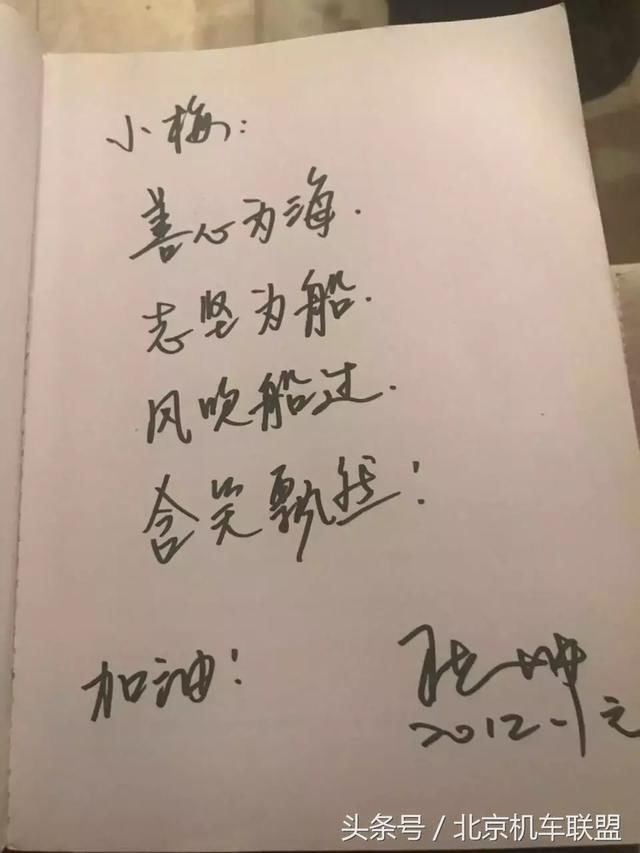 小梅：
善心为海．
志坚为船．
风吹船过．
含笑飘然！
加油！
张坤
2012.1元
头条号／北京机车联盟